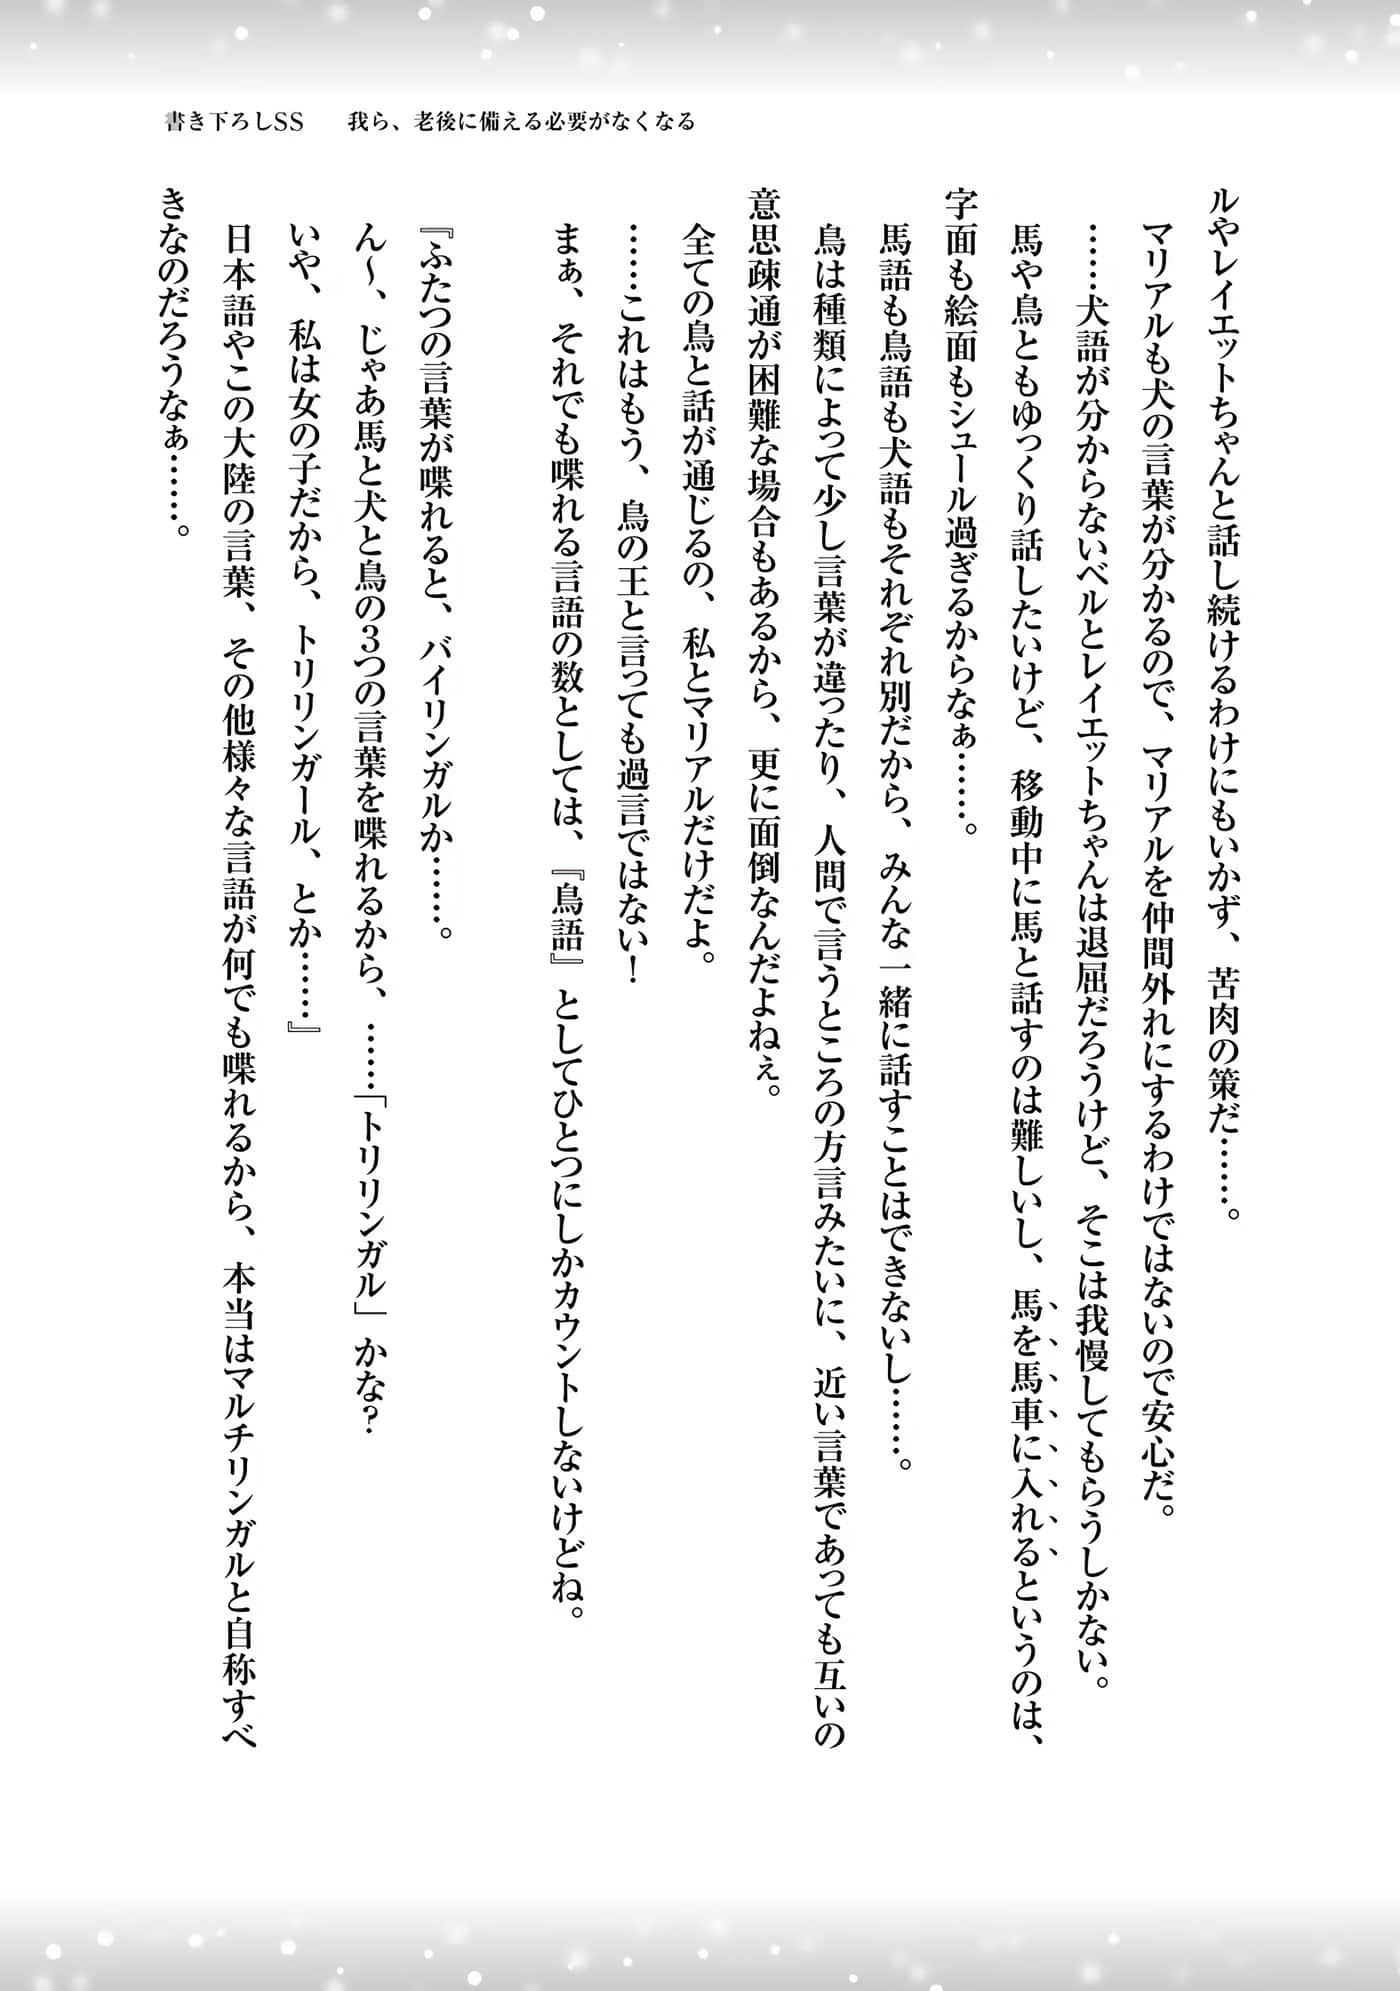 書き下ろしSS　我ら、老後に備える必要がなくなる
ルやレイエットちゃんと話し続けるわけにもいかず、苦肉の策だ……。
マリアルも犬の言葉が分かるので、マリアルを仲間外れにするわけではないので安心だ。
……犬語が分からないベルとレイエットちゃんは退屈だろうけど、そこは我慢してもらうしかない。
馬や鳥ともゆっくり話したいけど、移動中に馬と話すのは難しいし、馬を馬車に入れるというのは、
字面も絵面もシュール過ぎるからなぁ……。
馬語も鳥語も犬語もそれぞれ別だから、みんな一緒に話すことはできないし……。
鳥は種類によって少し言葉が違ったり、人間で言うところの方言みたいに、近い言葉であっても互いの
意思疎通が困難な場合もあるから、更に面倒なんだよねぇ。
全ての鳥と話が通じるの、私とマリアルだけだよ。
……これはもう、鳥の王と言っても過言ではない！
まぁ、それでも喋れる言語の数としては、『鳥語』としてひとつにしかカウントしないけどね。
『ふたつの言葉が喋れると、バイリンガルか……。
ん〜、じゃあ馬と犬と鳥の3つの言葉を喋れるから、……「トリリンガル」かな？
いや、私は女の子だから、トリリンガール、とか……』
日本語やこの大陸の言葉、その他様々な言語が何でも喋れるから、本当はマルチリンガルと自称すべ
きなのだろうなぁ……。